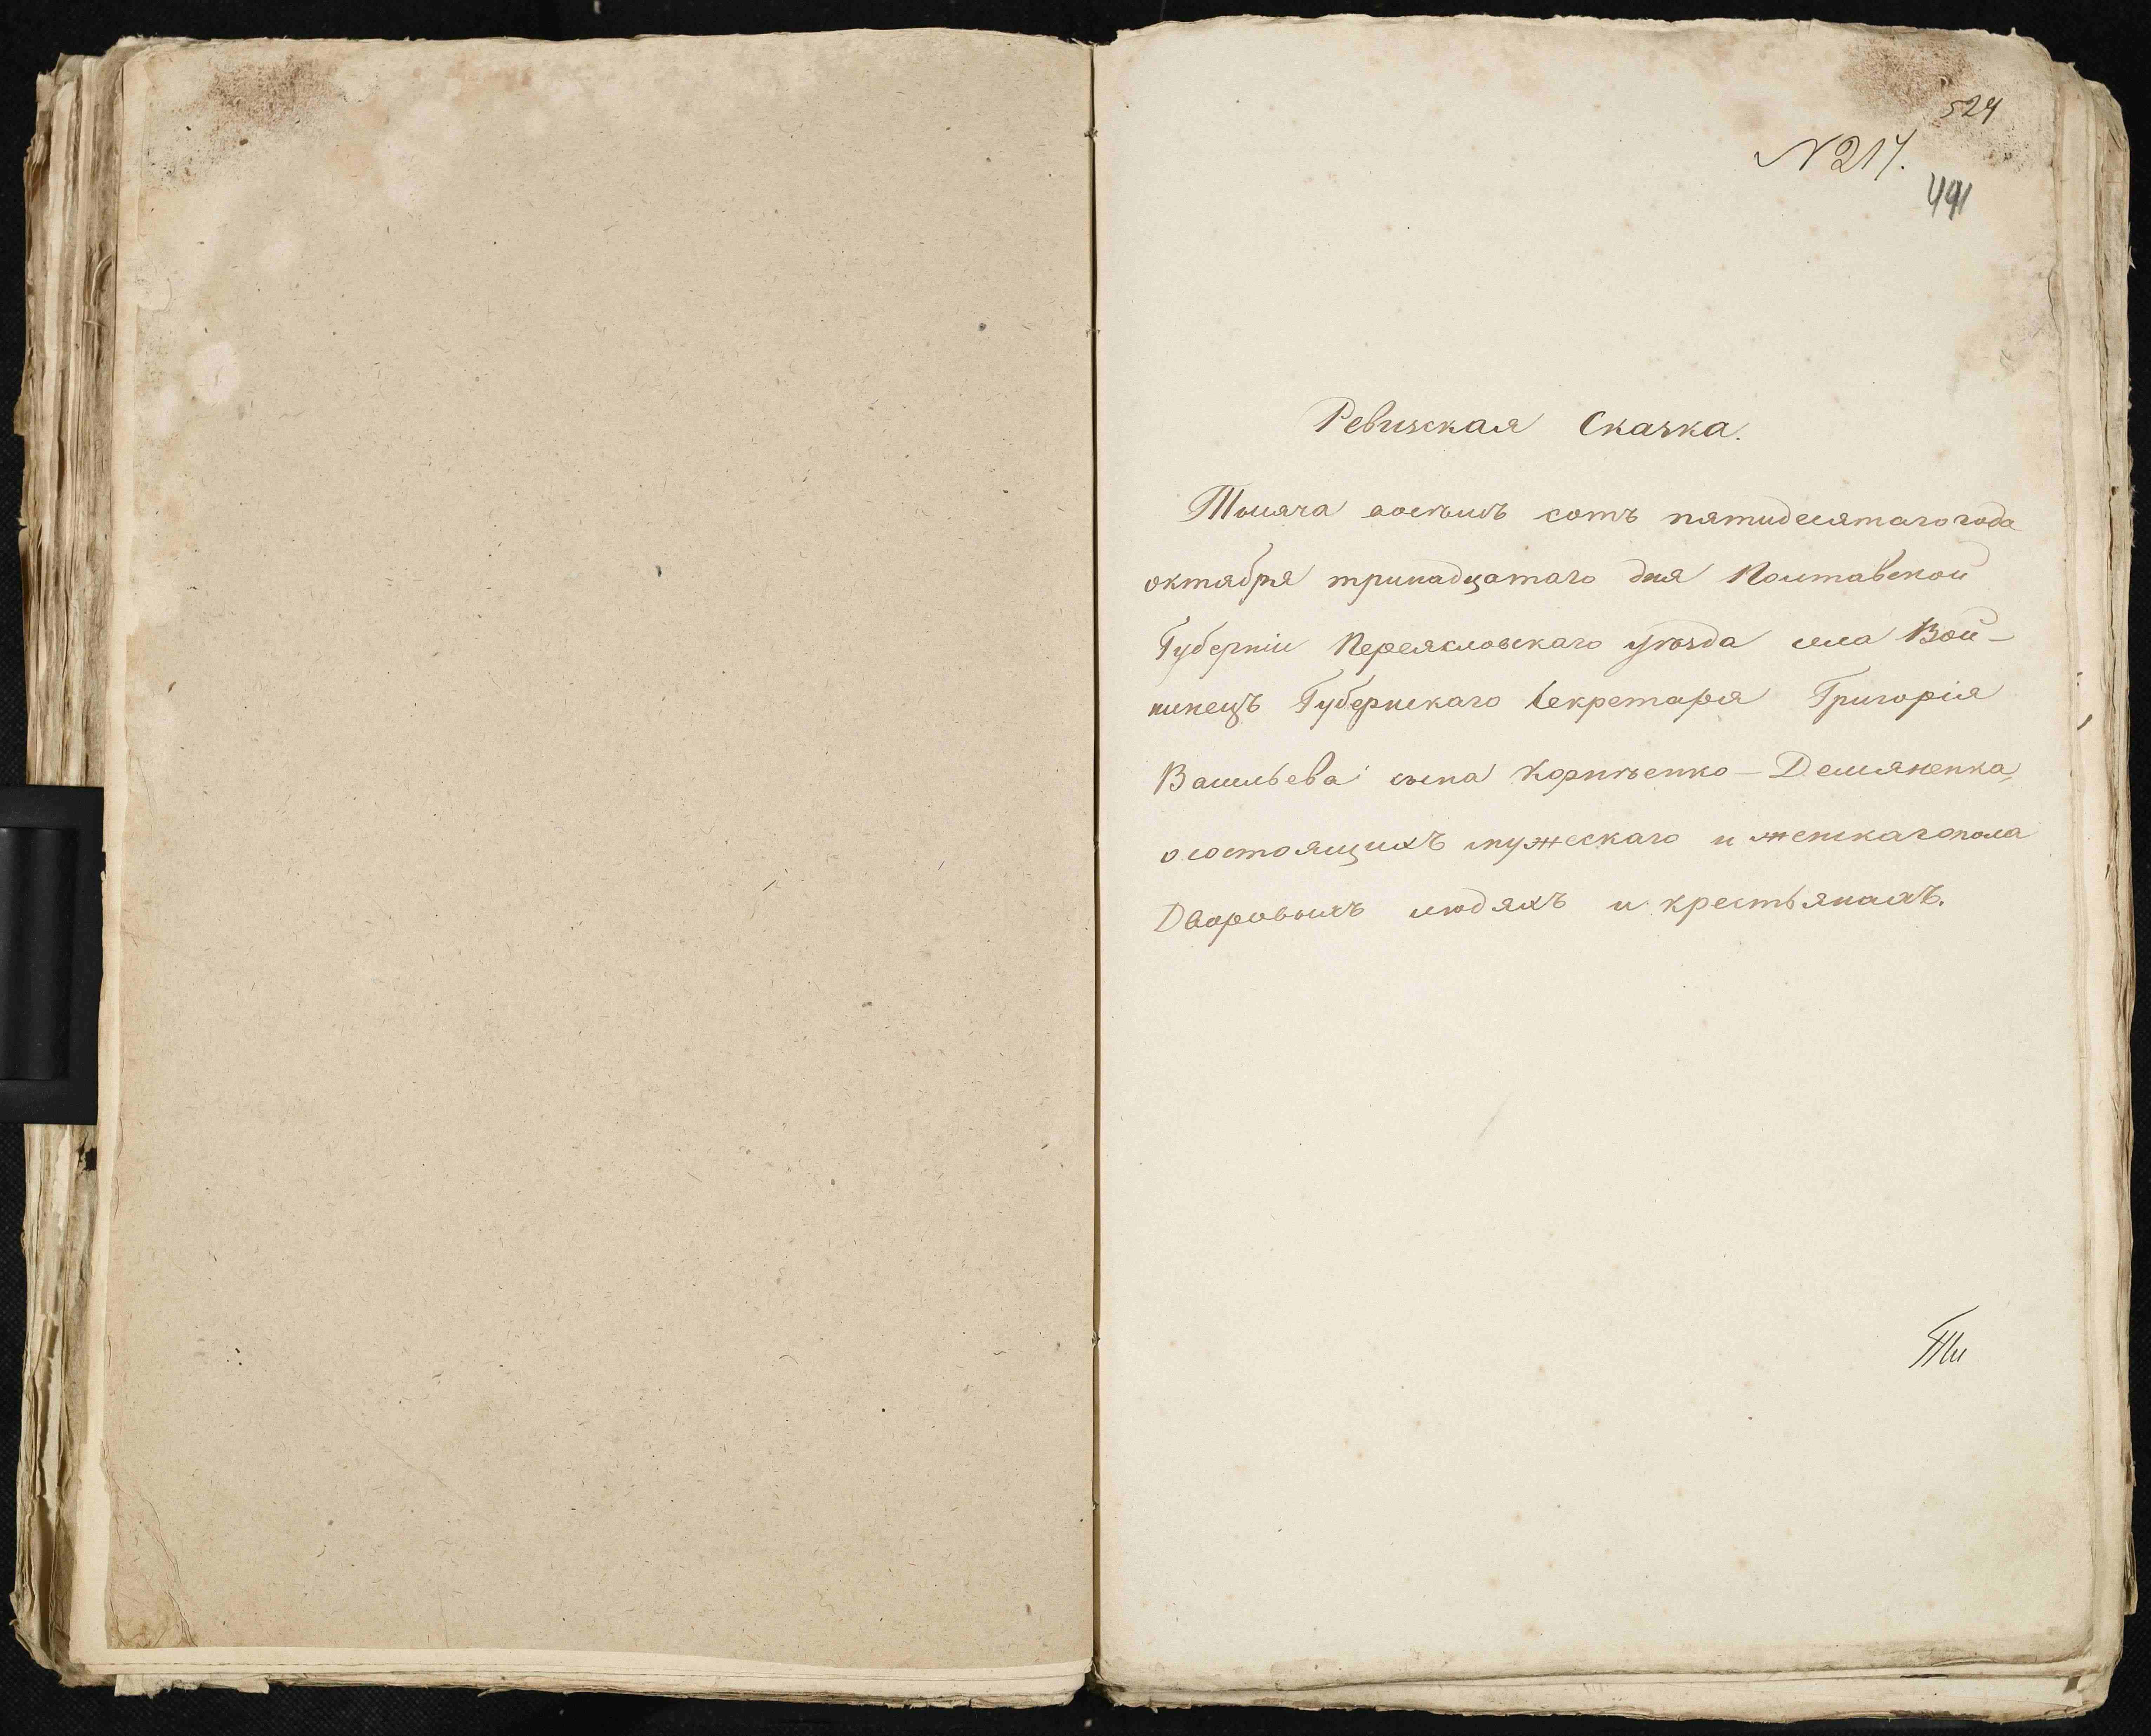 524
N 217.
441
Ревизская Сказка.
Тысяча восѣмь сотъ пятидесятаго года
октября тринадцатаго дня Полтавской
Губерніи Переясловскаго уѣзда села Вой-
нинецъ Губернскаго Секретаря Григорія
Васильева сына Корнѣенко-Демяненка,
о состоящихъ мужескаго и женскаго пола
Дворовыхъ людяхъ и крестьянахъ.